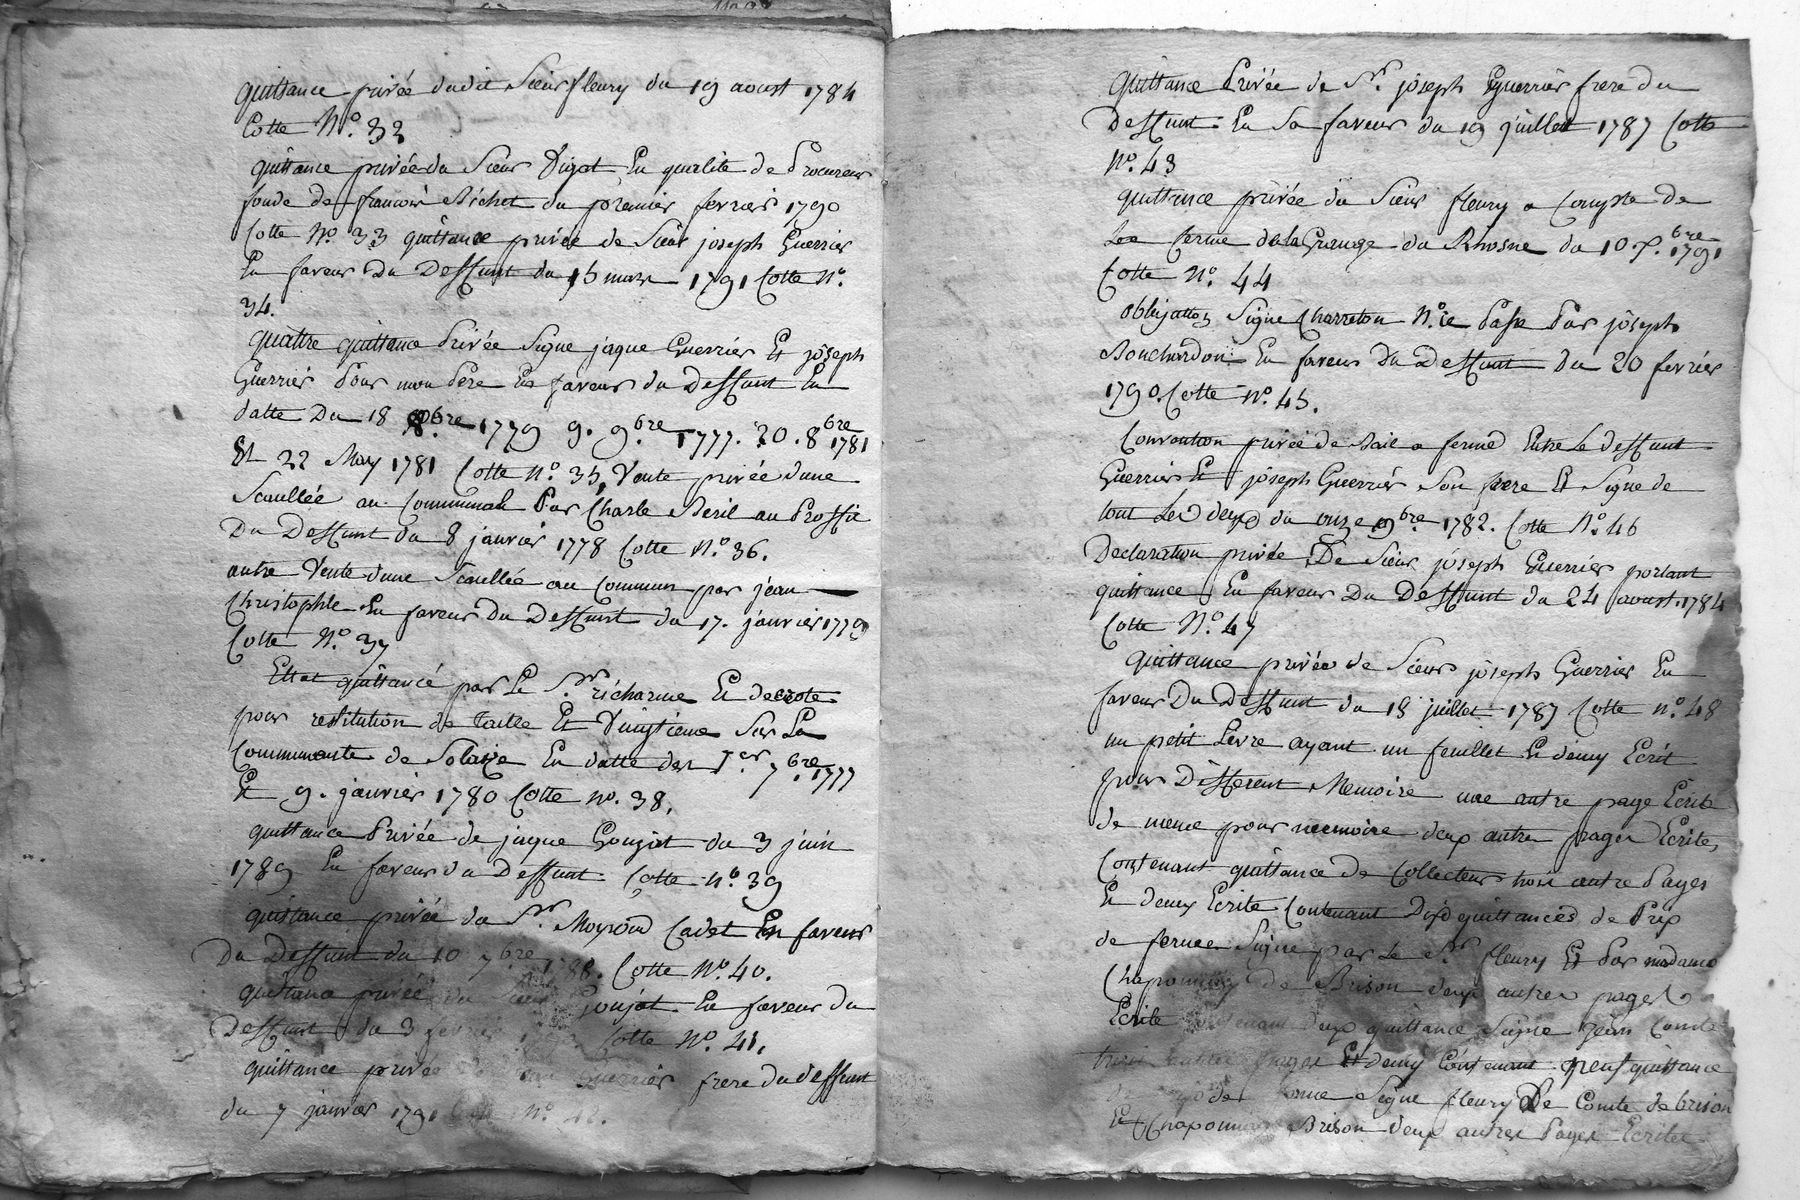 quittance privée dudit Sieur fleury du 19 aoust 1784
Cotte N.o 32
quittance privée du Sieur Vigot En qualite de Procureur
fonde de francois Bichet du premier fevrier 1790
Cotte N.o 33 quittance privée de Sieur joseph Guerrier
En faveur Du Deffunt du 15 mars 1791 Cotte N.o
34.
quattre quittance Privée Signe jaque Guerrier Et joseph
Guerrier Pour mon Pere En faveur du Deffunt En
datte Du 18 8bre 1779 9. 9bre 1777. 20. 8bre 1781
Et 22 May 1781 Cotte N.o 35, Vente privée dune
Scaullée au Communal Par Charle Beril au Proffit
Du Deffunt du 8 janvier 1778 Cotte N.o 36.
autre Vente dune Scaullée au Commun par jean
Christophle En faveur Du Deffunt du 17. janvier 1779
Cotte N.o 37
Ettat quittancé par Le S.r richarme Et decrote
pour restitution de Taille Et Vingtieme Sur La
Communeaute de Solaize En datte des 1er 7bre 1777
Et 9. janvier 1780 Cotte no. 38,
quittance Privée de jaque Goujat du 3 juin
1789 En faveur du Deffunt Cotte N.o 39
quittance privée du S.r Moyroud Cadet En faveur
Du Deffunt du 10 7bre 1788. Cotte N.o 40.
quittance privée du Sieur Goujat En faveur du
Deffunt du 3 fevrier Cotte N.o 41,
quittance privée Guerrier frere du deffunt
du 7 janvier 1791 Cotte N.o 42.
quittance Privée de S.r joseph Guerrier frere du
Deffunt En Sa faveur du 19 juillet 1787 Cotte
N.o 43
quittance privée du Sieur fleury a Compte de
Les ferme de la Grange du Rhosne du 10 7.bre 1791
Cotte N.o 44
obligatton Signe Charreton N.re passe Par joseph
Bouchardon En faveur Du Deffunt du 20 fevrier
1790. Cotte N.o 45.
Convention privée de Bail a ferme Entre Le deffunt
Guerrier Et joseph Guerrier Son frere Et Signe de
tout Les deux du onze 9bre 1782. Cotte N.o 46
Declaration privée De Sieur joseph Guerrier portant
quittance En faveur Du Deffunt du 24 aoust 1784
Cotte N.o 47
Quittance privée de Sieur joseph Guerrier En
faveur Du Deffunt du 18 juillet 1787 Cotte n.o 48
un petit Livre ayant un feuillet Et demy Ecrit
pour Different Memoire une autre page Ecrite
de meme pour memoire deux autre pages Ecrites
Contenant quittance de Collecteur trois autre Pages
Et demy Ecrite Contenant Dix quittances de Prix
de fermee Signe par Le S.r fleury Et Par madame
Chaponnay De Brison deux autres pages
Ecrite Contenant Deux quittance Signe jean Comte
trois autre pages Et demy Contenant neuf quittance
de Signe fleury De Comte de brison
Et Chaponnay Brison deux autres Pages Ecrites